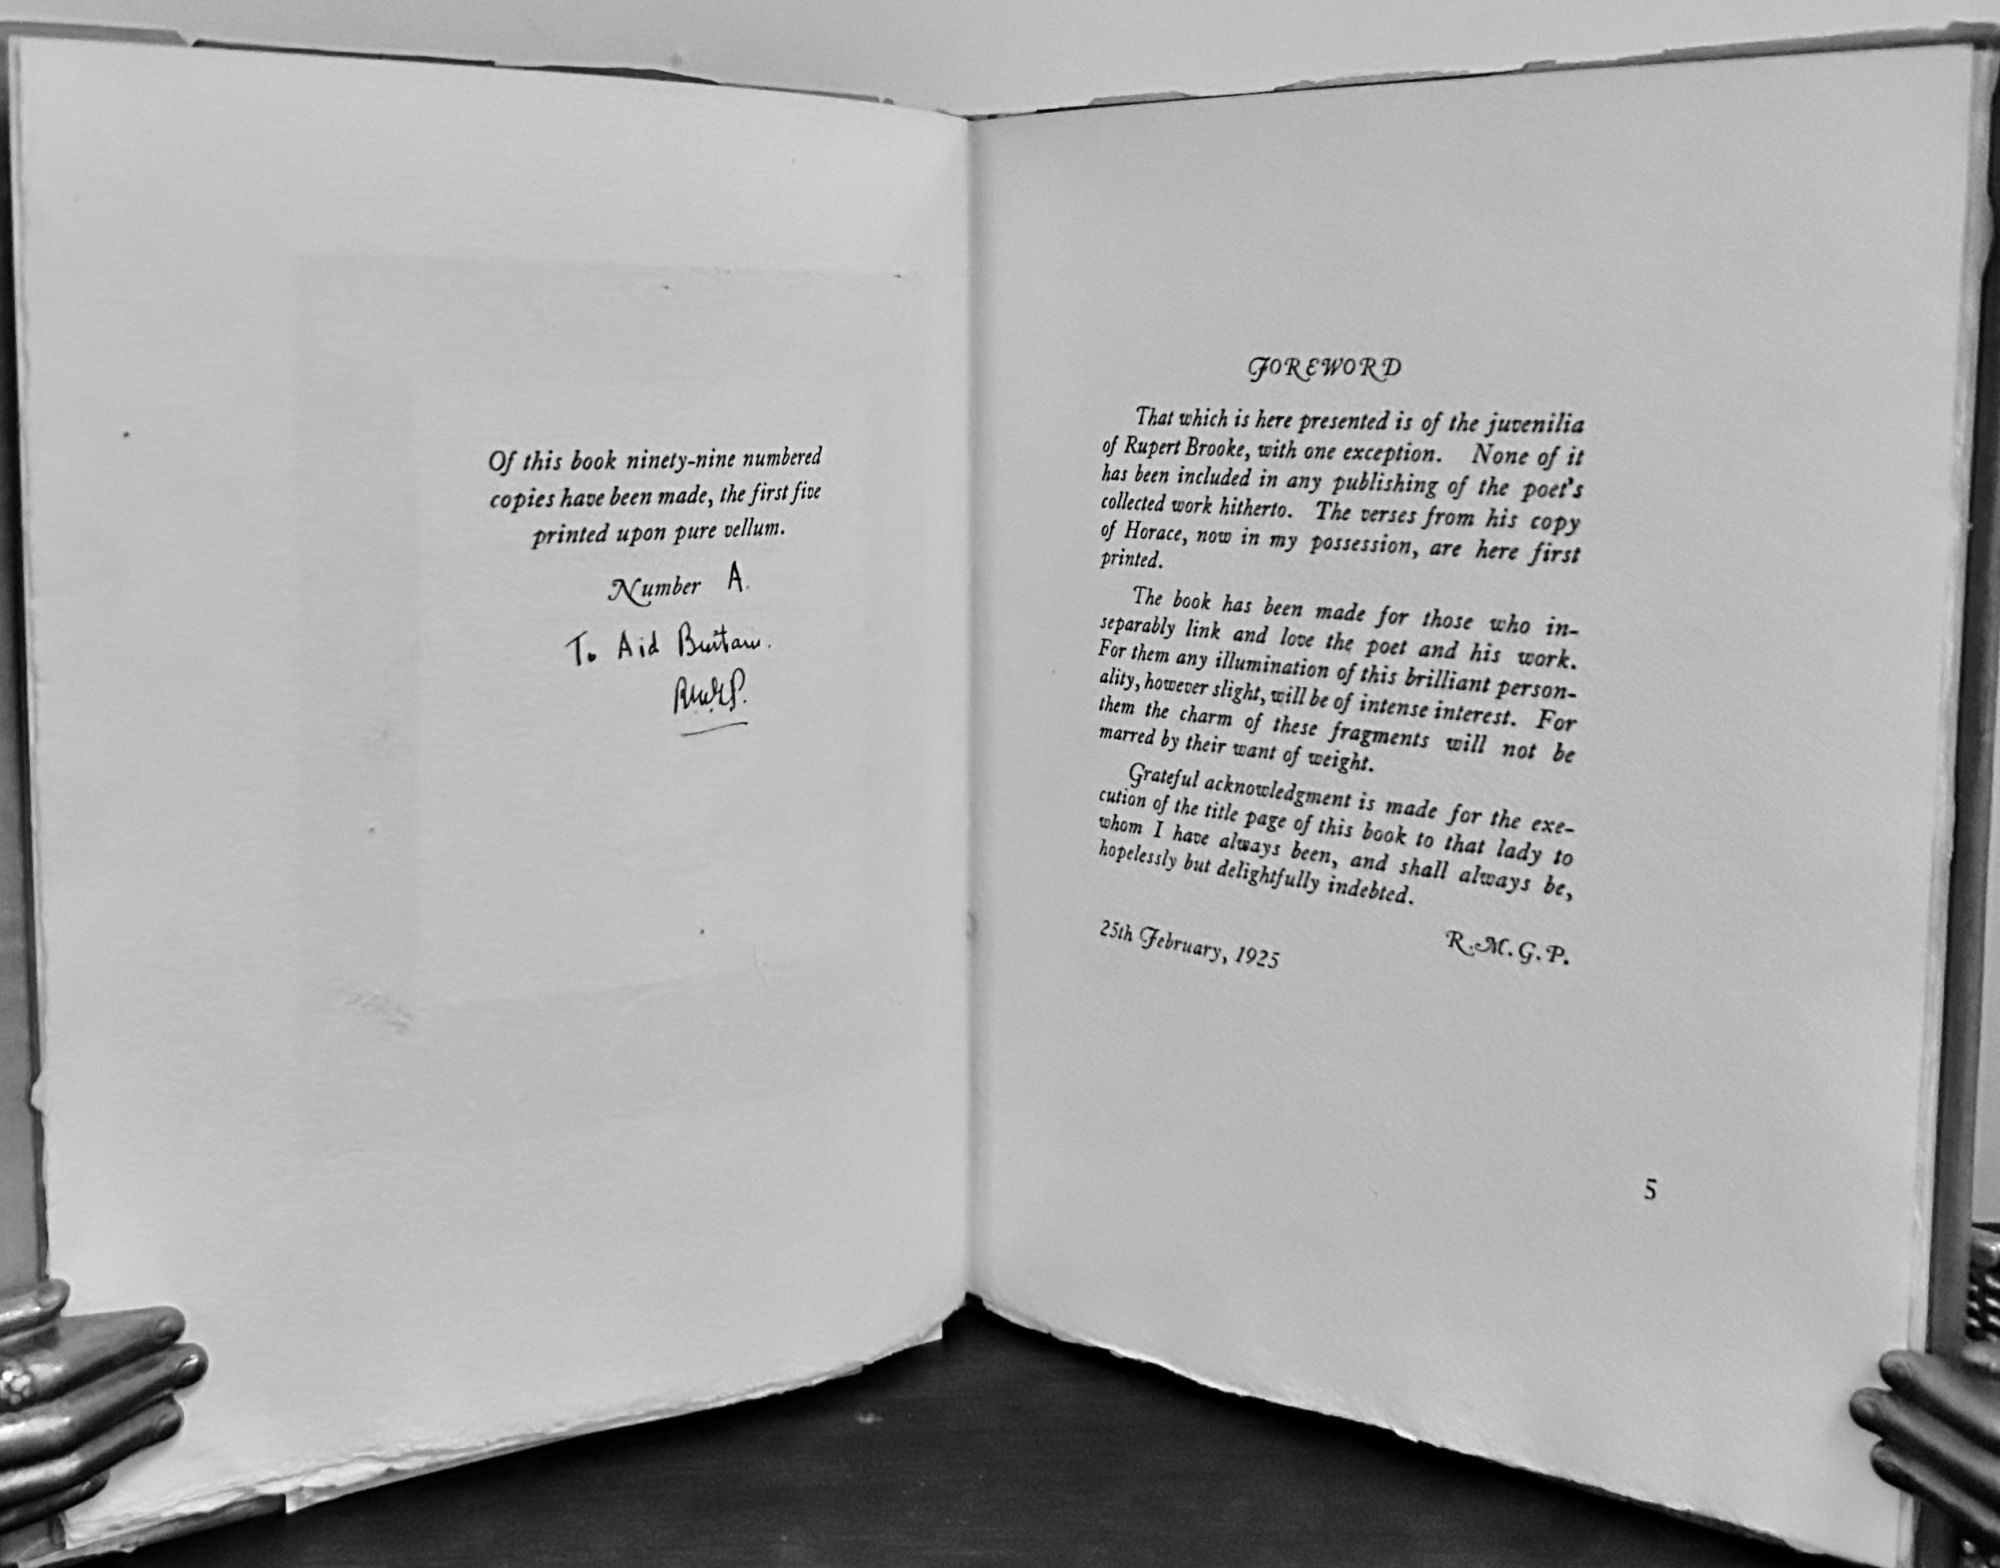 Of this book ninety-nine numbered
copies have been made, the first five
printed upon pure vellum.
Number A.
To Aid Britain.
R.M.G.P.
FOREWORD
That which is here presented is of the juvenilia
of Rupert Brooke, with one exception. None of it
has been included in any publishing of the poet's
collected work hitherto. The verses from his copy
of Horace, now in my possession, are here first
printed.
The book has been made for those who in-
separably link and love the poet and his work.
For them any illumination of this brilliant person-
ality, however slight, will be of intense interest. For
them the charm of these fragments will not be
marred by their want of weight.
Grateful acknowledgment is made for the exe-
cution of the title page of this book to that lady to
whom I have always been, and shall always be,
hopelessly but delightfully indebted.
25th February, 1925
R.M.G.P.
5